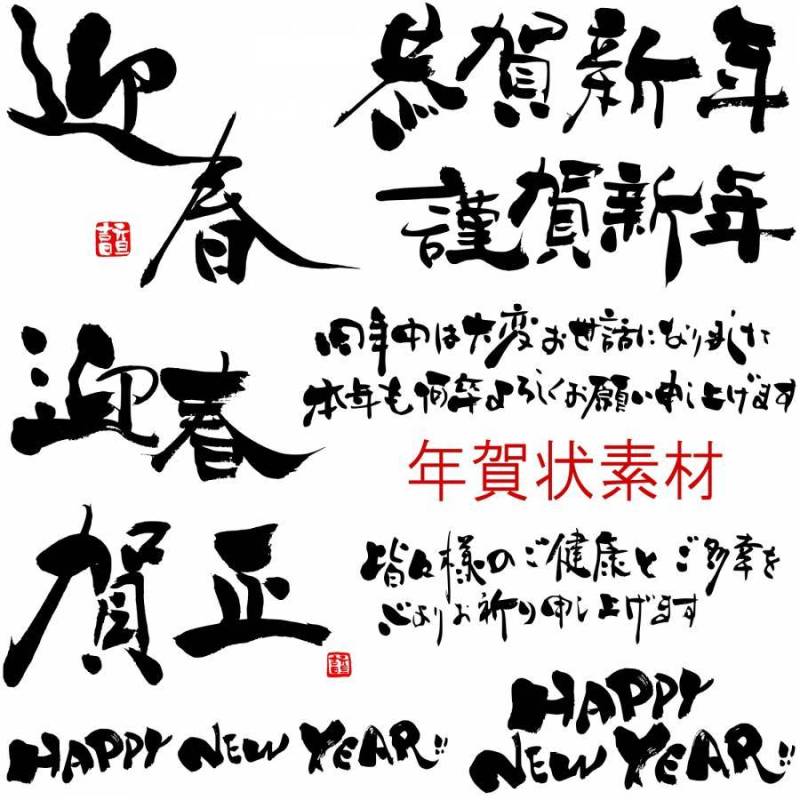 迎春
恭賀新年
謹賀新年
旧年中は大変お世話になりました
本年も何卒よろしくお願い申し上げます
迎春
年賀状素材
賀正
皆々様のご健康とご多幸を
心よりお祈り申し上げます
HAPPY NEW YEAR!!
HAPPY
NEW YEAR!!